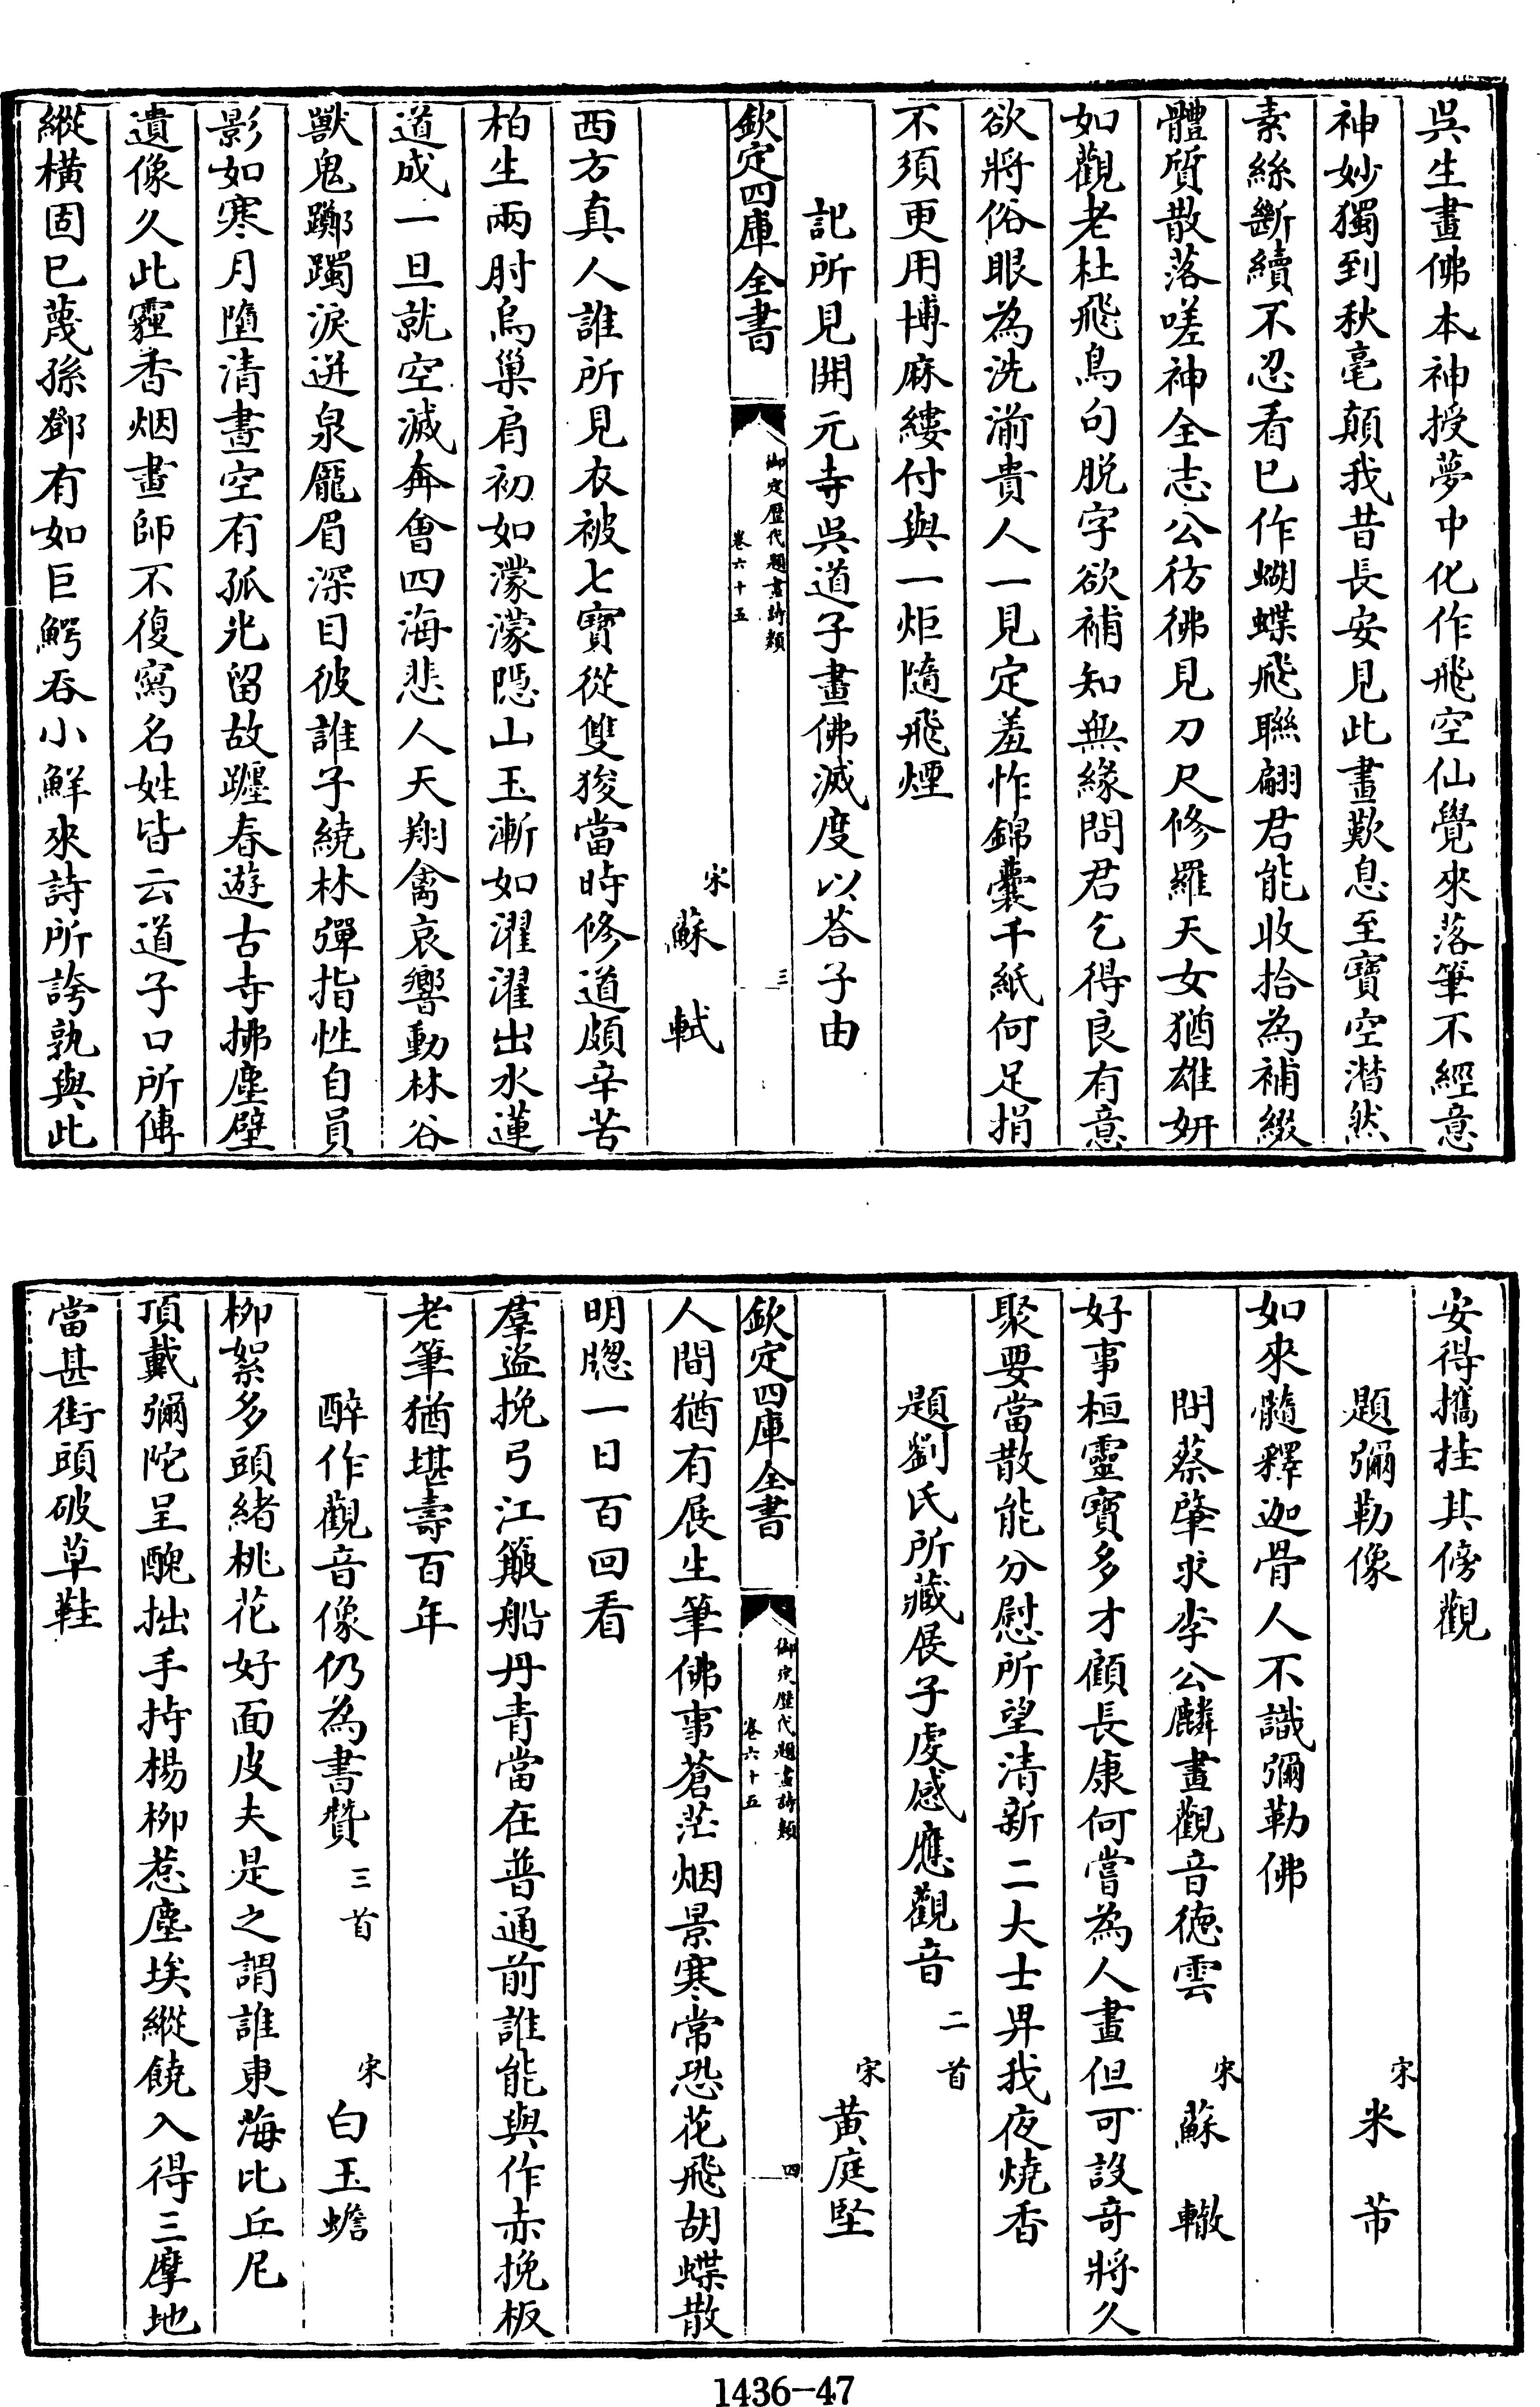 吳生畫佛本神授夢中化作飛空仙覺來落筆不經意
神妙獨到秋毫顛我昔長安見此畫歎息至寶空潸然
素絲斷續不忍看已作蝴蝶飛聯翩君能收拾為補綴
體質散落嗟神全志公彷彿見刀尺修羅天女猶雄妍
如觀老杜飛鳥句脱字欲補知無緣問君乞得良有意
欲將俗眼為洗湔貴人一見定羞怍錦囊千紙何足捐
不須更用博麻縷付與一炬隨飛煙
記所見開元寺吳道子畫佛滅度以荅子由
欽定四庫全書
御定歷代題畫詩類
卷六十五
三
宋蘇軾
西方真人誰所見衣被七寶從雙狻當時修道頗辛苦
柏生兩肘烏巢肩初如濛濛隱山玉漸如濯濯出水蓮
道成一旦就空滅奔會四海悲人天翔禽哀響動林谷
獸鬼躑躅淚迸泉龎眉深目彼誰子繞林彈指性自員
影如寒月墮清晝空有孤光留故躔春遊古寺拂塵壁
遺像久此霾香烟畫師不復寫名姓皆云道子口所傳
縱橫固已蔑孫鄧有如巨鰐吞小鮮來詩所誇孰與此
安得攜挂其傍觀
題彌勒像
宋米芾
如來髓釋迦骨人不識彌勒佛
問蔡肇求李公麟畫觀音德雲
宋蘇轍
好事桓靈寶多才顧長康何嘗為人畫但可設奇將久
聚要當散能分慰所望清新二大士畀我夜燒香
題劉氏所藏展子虔感應觀音二首
宋黄庭堅
欽定四庫全書
御定歷代題畫詩類
卷六十五
四
人間猶有展生筆佛事蒼茫烟景寒常恐花飛胡蝶散
明牕一日百回看
羣盜挽弓江簸船丹青當在普通前誰能與作赤挽板
老筆猶堪壽百年
醉作觀音像仍為書贊三首
宋白玉蟾
柳絮多頭緒桃花好面皮夫是之謂誰東海比丘尼
頂戴彌陀呈醜拙手持楊柳惹塵埃縱饒入得三摩地
當甚街頭破草鞋
1436-47